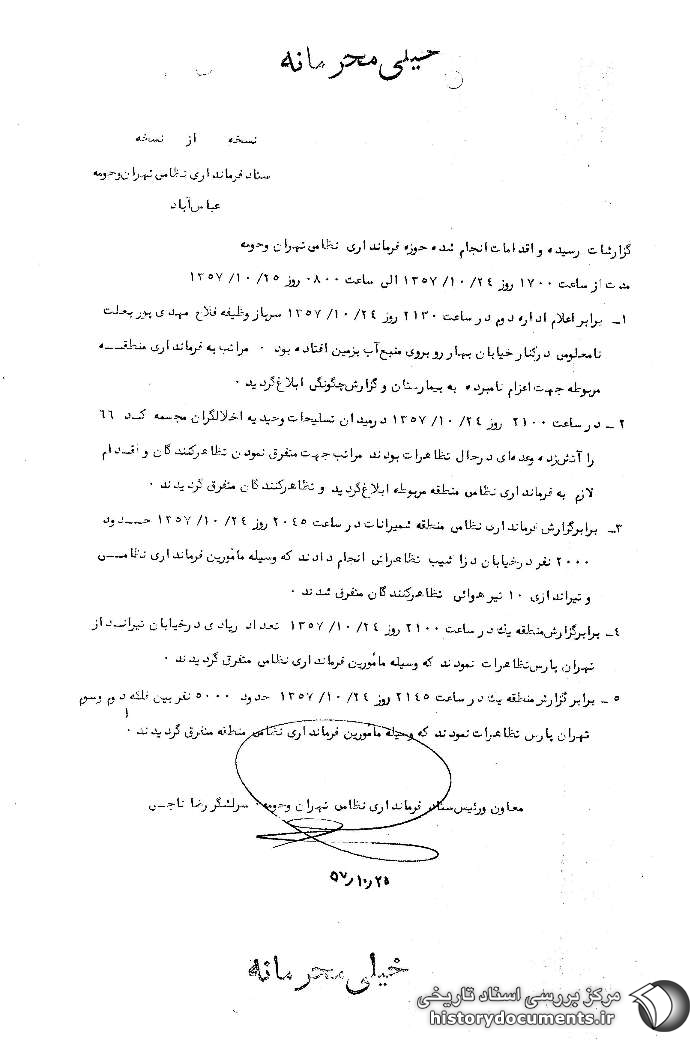 خیلی محرمانه
نسخه از نسخه
ستاد فرمانداری نظامی تهران وحومه
عباس‌آباد
گزارشات رسیده و اقدامات انجام شده حوزه فرمانداری نظامی تهران وحومه
مدت از ساعت ۱۷۰۰ روز ۲۴/ ۱۰/ ۱۳۵۷ الی ساعت ۰۸۰۰ روز ۲۵/ ۱۰/ ۱۳۵۷
۱ـ برابر اعلام اداره دوم در ساعت ۲۱۳۰ روز ۲۴/ ۱۰/ ۱۳۵۷ سرباز وظیفه فلاح مهدی پور بعلت
نامعلومی درکنار خیابان بهار روبروی منبع آب بزمین افتاده بود ۰ مراتب به فرمانداری منطقه
مربوطه جهت اعزام نامبرده به بیمارستان و گزارش چگونگی ابلاغ گردید ۰
۲ـ در ساعت ۲۱۰۰ روز ۲۴/ ۱۰/ ۱۳۵۷ درمیدان تسلیحات وحیدیه اخلالگران مجسمه کد ۶۶
را آتش زده وعده‌ای درحال تظاهرات بودند مراتب جهت متفرق نمودن تظاهرکنندگان و اقدام
لازم به فرمانداری نظامی منطقه مربوطه ابلاغ گردید و تظاهرکنندگان متفرق گردیدند ۰
۳ـ برابرگزارش فرمانداری نظامی منطقه شمیرانات در ساعت ۲۰۴۵ روز ۲۴/ ۱۰/ ۱۳۵۷ حدود
۲۰۰۰ نفر درخیابان دزاشیب تظاهراتی انجام دادند که وسیله مأمورین فرمانداری نظامی
و تیراندازی ۱۰ تیر هوائی تظاهرکنندگان متفرق شدند ۰
۴ـ برابرگزارش منطقه یک در ساعت ۲۱۰۰ روز ۲۴/ ۱۰/ ۱۳۵۷ تعداد زیادی درخیابان تیرانداز
تهران پارس تظاهرات نمودند که وسیله مأمورین فرمانداری نظامی متفرق گردیدند ۰
۵ـ برابر گزارش منطقه یک در ساعت ۲۱۴۵ روز ۲۴/ ۱۰/ ۱۳۵۷ حدود ۵۰۰۰ نفر بین فلکه دوم وسوم
تهران پارس تظاهرات نمودند که وسیله مأمورین فرمانداری نظامی منطقه متفرق گردیدند ۰
معاون ورئیس ستاد فرمانداری نظامی تهران وحومه ۰ سرلشگر رضا ناجی
۵۷/۱۰/۲۵
خیلی محرمانه
مرکز بررسی اسناد تاریخی
historydocuments.ir